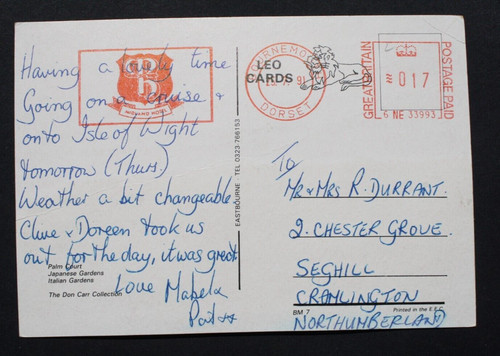 Having a lovely time
Going on a cruise &
onto Isle of Wight
tomorrow (Thurs).
Weather a bit changeable
Clive & Doreen took us
out for the day, it was great
Love Mabel &
Pat xx
MIDLAND HOTEL
Palm Court
Japanese Gardens
Italian Gardens
The Don Carr Collection
EASTBOURNE TEL 0323-766153
LEO
CARDS
DORSET
GREAT BRITAIN
017
POSTAGE PAID
6 NE 33993
To
Mr & Mrs R. DURRANT.
2. CHESTER GROVE.
SEGHILL
CRAMLINGTON
NORTHUMBERLAND
BM 7
Printed in the E.E.C.